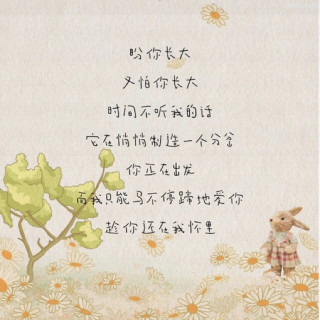 盼你长大
又怕你长大
时间不听我的话
它在悄悄制造一个分岔
你正在出发
而我只能马不停蹄地爱你
趁你还在我怀里